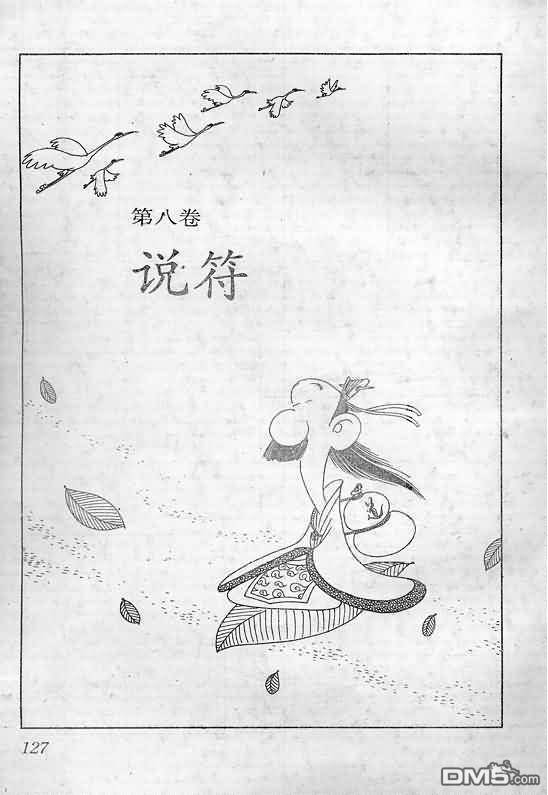 第八卷
说符
127
DM5.com